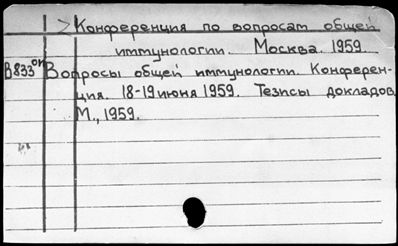 > Конференция по вопросам общей
иммунологии. Москва. 1959
В833оп Вопросы общей иммунологии. Конферен-
ция. 18-19 июня 1959. Тезисы докладов.
М., 1959.